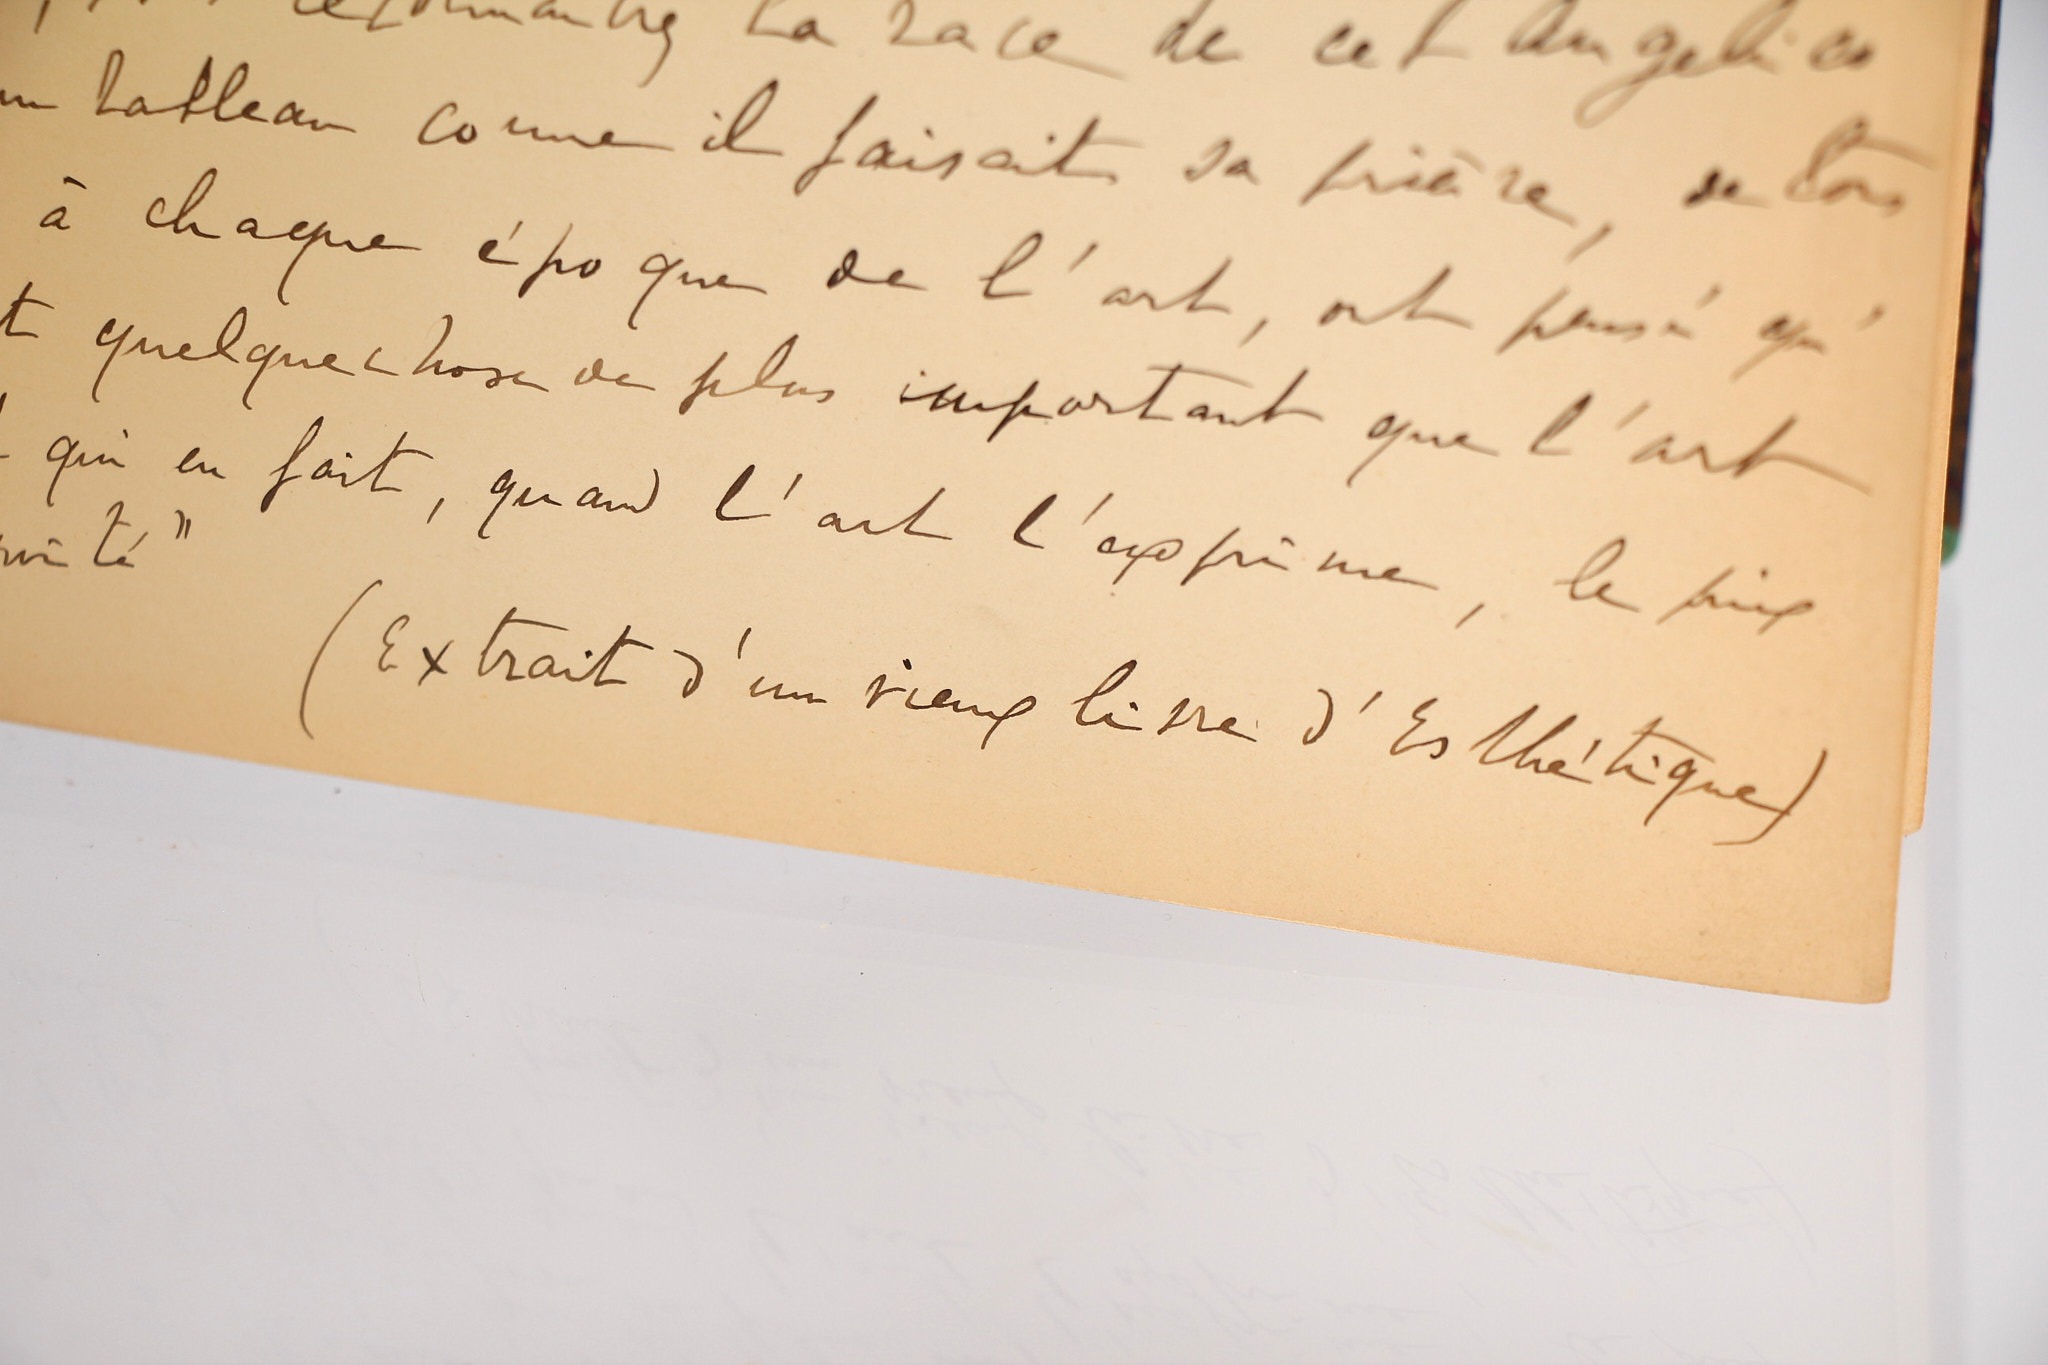 la race de cet Angelico
tableau comme il faisait sa prière, de tous
à chaque époque de l'art, ont pensé qu'
quelquechose de plus important que l'art
qui en fait, quand l'art l'exprime, le prix
(Extrait d'un vieux livre d'Esthétique)